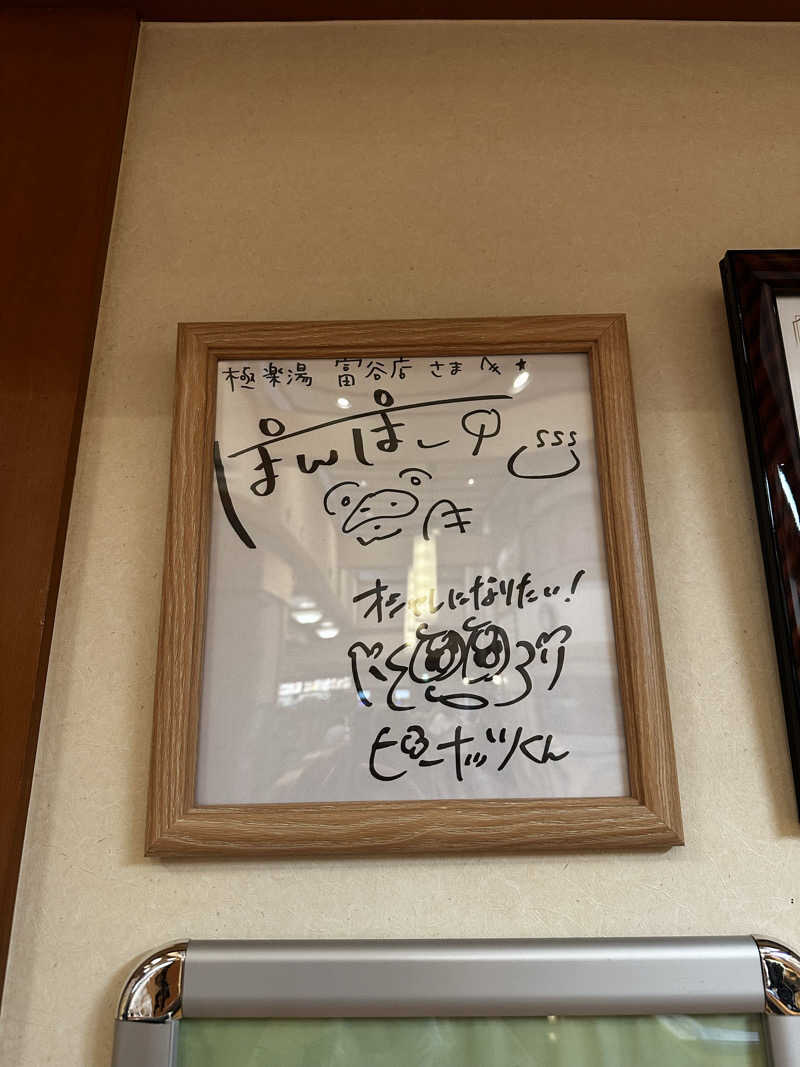 極楽湯 富谷店 さまへ
ぽんぽこ
オシャレになりたい!
ピーナッツくん